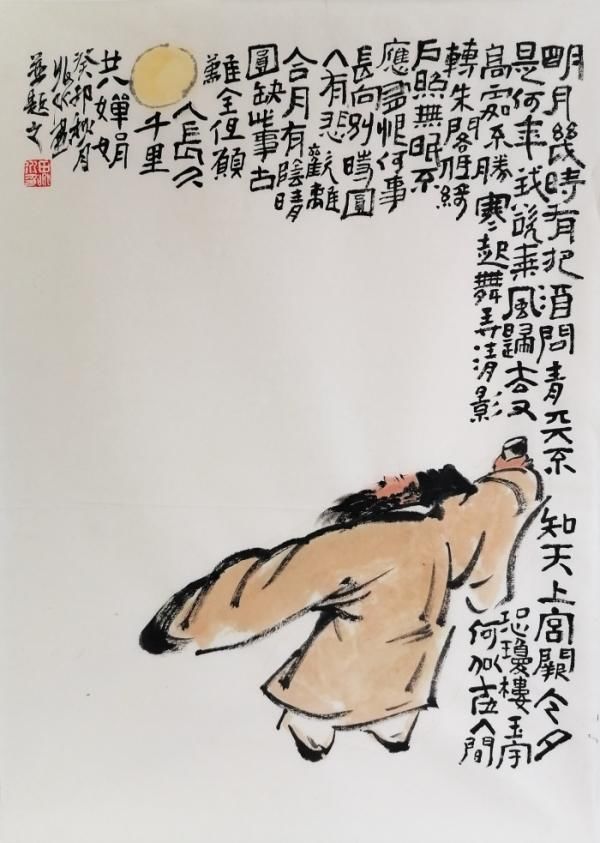 明月幾時有把酒問青天不知天上宮闕今夕
是何年我欲乘風歸去又恐瓊樓玉宇
高處不勝寒起舞弄清影何似在人間
轉朱閣低綺
戶照無眠不
應有恨何事
長向別時圓
人有悲歡離
合月有陰晴
圓缺此事古
難全但願
人長久
千里
共嬋娟
癸卯秋月
畫
并題之